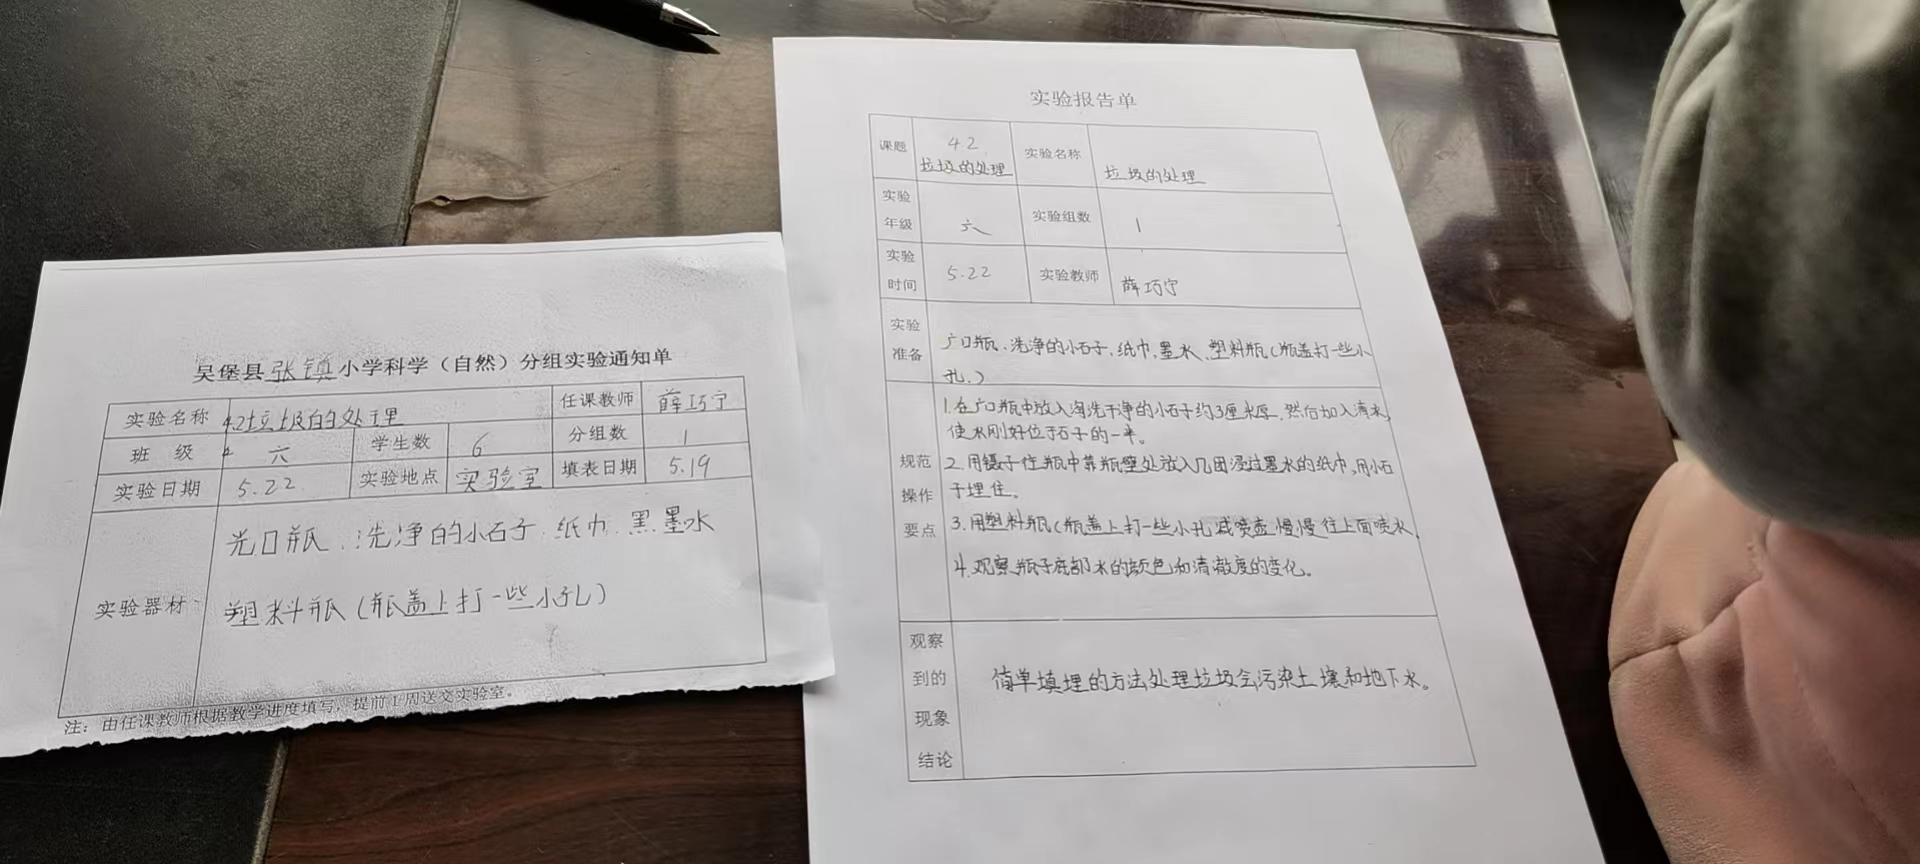 吴堡县张镇小学科学（自然）分组实验通知单
实验名称 4.2垃圾的处理 任课教师 薛巧宁
班 级 六 学生数 6 分组数 1
实验日期 5.22. 实验地点 实验室 填表日期 5.19
实验器材
光口瓶、洗净的小石子、纸巾、黑墨水
塑料瓶（瓶盖上打一些小孔）
注：由任课教师根据教学进度填写，提前1周送交实验室。
实验报告单
课题 4.2 垃圾的处理 实验名称 垃圾的处理
实验年级 六 实验组数 1
实验时间 5.22 实验教师 薛巧宁
实验准备
广口瓶、洗净的小石子、纸巾、墨水、塑料瓶（瓶盖打一些小
孔.）
规范操作要点
1.在广口瓶中放入淘洗干净的小石子约3厘米厚.然后加入清水,
使水刚好位于石子的一半。
2.用镊子往瓶中靠瓶壁处放入几团浸过墨水的纸巾,用小石
子埋住。
3.用塑料瓶(瓶盖上打一些小孔)或喷壶慢慢往上面喷水.
4.观察瓶子底部水的颜色和清澈度的变化。
观察到的现象结论
简单填埋的方法处理垃圾会污染土壤和地下水。